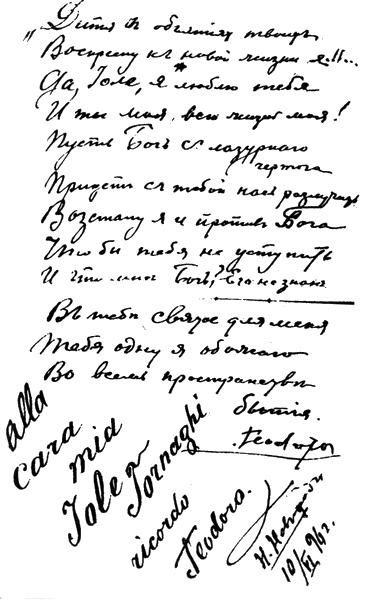 „Дитя въ объятіяхъ твоихъ
Воскресну къ новой жизни я!!..
Да, Іоле, я люблю тебя
И ты моя, вся жизнь моя!
Пусть Богъ съ лазурнаго
чертога
Придетъ съ тобой насъ разлучить
Возстану я и противъ Бога
Что бы тебя не уступить
И что мнѣ Богъ,? Его не знаю
Въ тебѣ святое для меня
Тебя одну я обожаю
Во всемъ пространствѣ
бытія.
Ѳеодоръ
alla
cara
mia
Iole Tornaghi
ricordo
Teodoro.
Н. Новгородъ
10/VI 96 г.